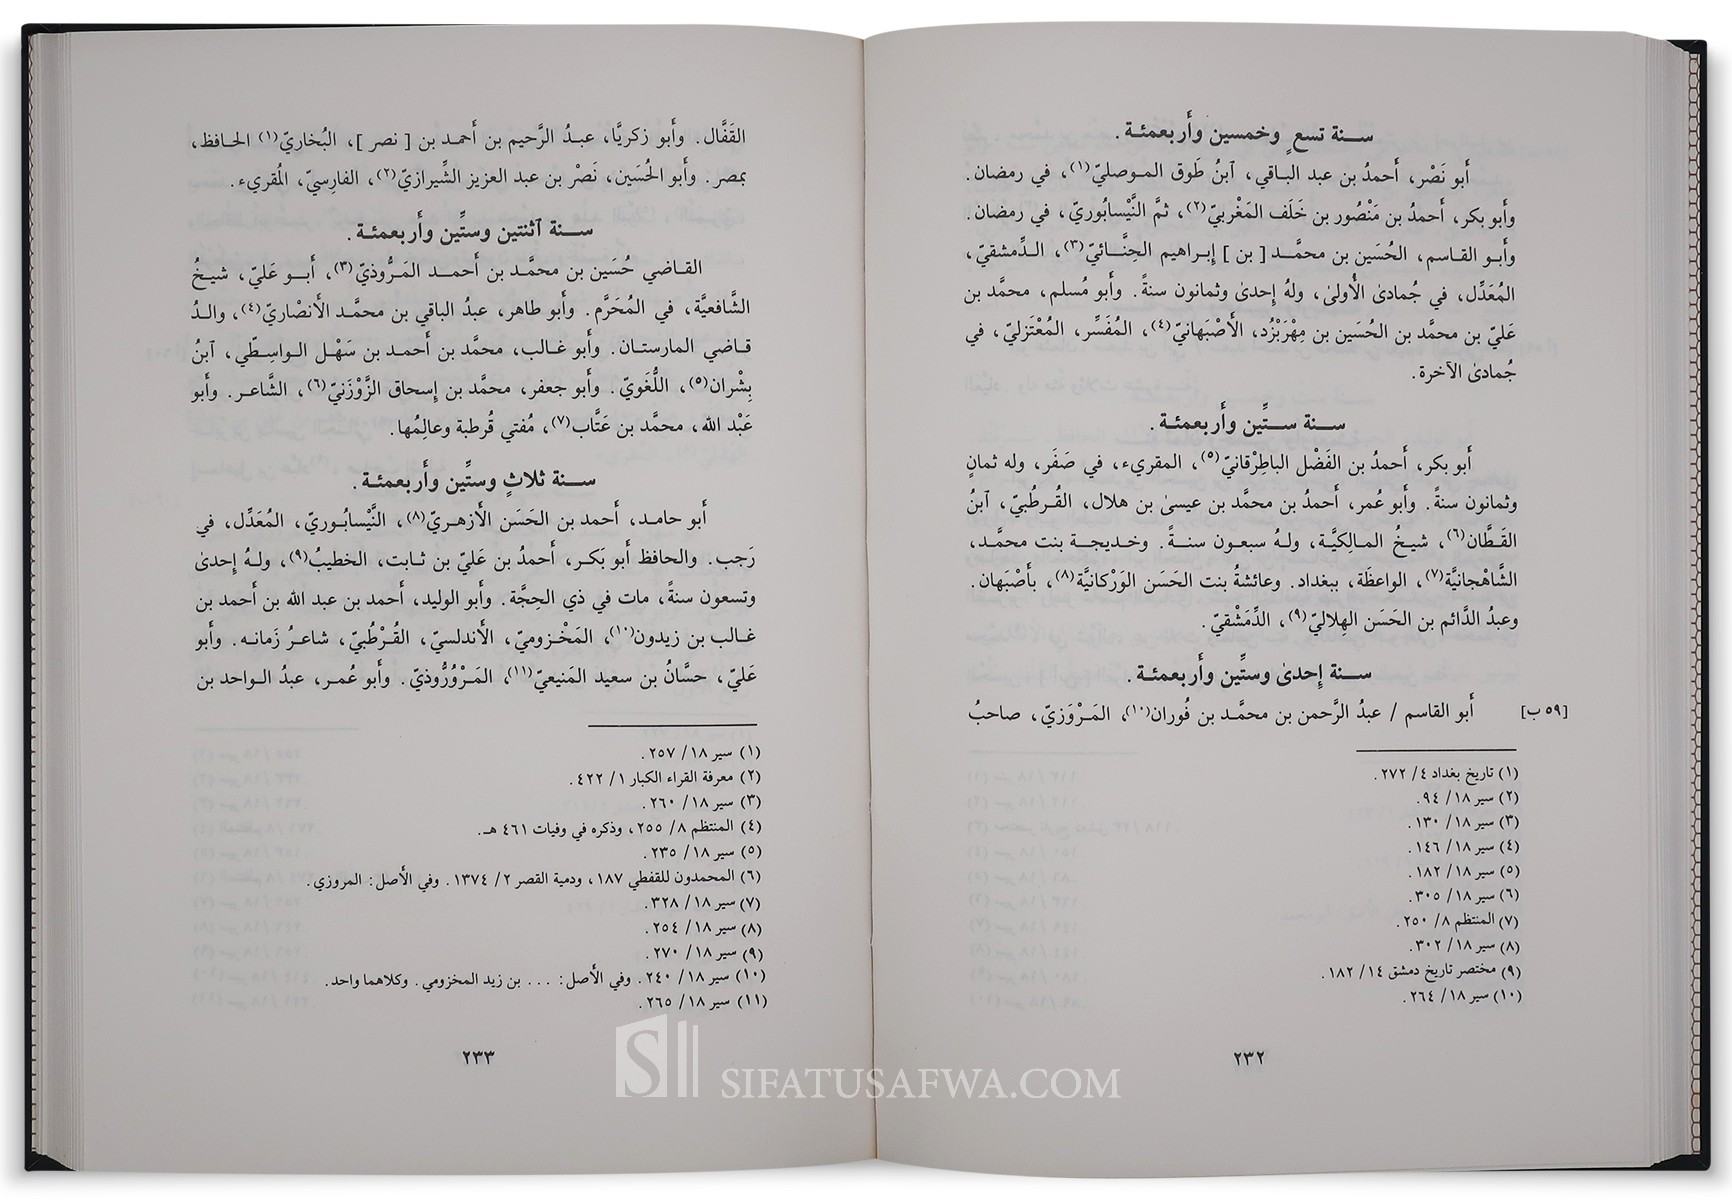 سنة تسعٍ وخمسين وأربعمئة .
أبو نَصْر، أحمدُ بن عبد الباقي، آبنُ طَوق الموصليّ(١)، في رمضان .
وأبو بكر، أحمدُ بن مَنْصُور بن خَلَف المَغْربيّ(٢)، ثمَّ النَّيْسابُوريّ، في رمضان .
وأبو القاسم، الحُسَين بن محمَّد [ بن ] إبراهيم الحِنَّائيّ(٣)، الدِّمشقيّ،
المُعَدِّل، في جُمادىٰ الأُولىٰ، ولهُ إحدىٰ وثمانون سنةً. وأبو مُسلم، محمَّد بن
عَليّ بن محمَّد بن الحُسَين بن مِهرَبْزُد، الأصْبَهانيّ(٤)، المُفَسِّر، المُعْتَزليّ، في
جُمادىٰ الآخرة.
سنة ستِّين وأَربعمئة .
أبو بكر، أحمدُ بن الفَضْل الباطِرْقانيّ(٥)، المقريء، في صَفَر، وله ثمانٍ
وثمانون سنةً. وأبو عُمر، أحمدُ بن محمَّد بن عيسىٰ بن هلال، القُرطُبيّ، آبنُ
القَطَّان(٦)، شيخُ المالِكيَّة، ولهُ سبعون سنةً. وخديجة بنت محمَّد،
الشَّاهْجانيَّة(٧)، الواعظَة، ببغداد. وعائشةُ بنت الحَسَن الوَرْكانيَّة(٨)، بأصْبَهان.
وعبدُ الدَّائم بن الحَسَن الهِلاليّ(٩)، الدِّمَشْقيّ.
سنة إحدىٰ وستِّين وأَربعمئة .
[٥٩ ب] أبو القاسم / عبدُ الرَّحمن بن محمَّد بن فُوران(١٠)، المَرْوَزيّ، صاحبُ
(١) تاريخ بغداد ٤/ ٢٧٢.
(٢) سير ١٨/ ٩٤.
(٣) سير ١٨/ ١٣٠.
(٤) سير ١٨/ ١٤٦.
(٥) سير ١٨/ ١٨٢.
(٦) سير ١٨/ ٣٠٥.
(٧) المنتظم ٨/ ٢٥٠.
(٨) سير ١٨/ ٣٠٢.
(٩) مختصر تاريخ دمشق ١٤/ ١٨٢.
(١٠) سير ١٨/ ٢٦٤.
٢٣٢
القَفَّال. وأبو زكريَّا، عبدُ الرَّحيم بن أحمد بن [ نصر ]، البُخاريّ(١) الحافظ،
بمصر. وأبو الحُسَين، نَصْر بن عبد العزيز الشِّيرازيّ(٢)، الفارِسيّ، المُقريء.
سنة آثنتين وستِّين وأَربعمئة .
القاضي حُسَين بن محمَّد بن أحمد المَرُّوذيّ(٣)، أبو عَليّ، شيخُ
الشَّافعيَّة، في المُحَرَّم. وأبو طاهر، عبدُ الباقي بن محمَّد الأنْصاريّ(٤)، والدُ
قاضي المارستان. وأبو غالب، محمَّد بن أحمد بن سَهْل الواسِطّي، آبنُ
بِشْران(٥)، اللُّغَويّ. وأبو جعفر، محمَّد بن إسحاق الزَّوْزَنيّ(٦)، الشَّاعر. وأبو
عَبْد الله، محمَّد بن عَتَّاب(٧)، مُفتي قُرطبة وعالِمُها.
سنة ثلاثٍ وستِّين وأَربعمئة .
أبو حامد، أحمد بن الحَسَن الأزهريّ(٨)، النَّيْسابُوريّ، المُعَدِّل، في
رَجب. والحافظ أبو بَكر، أحمدُ بن عَليّ بن ثابت، الخطيبُ(٩)، ولهُ إحدىٰ
وتسعون سنةً، مات في ذي الحِجَّة. وأبو الوليد، أحمد بن عبد الله بن أحمد بن
غالب بن زيدون(١٠)، المَخْزوميّ، الأندلسيّ، القُرْطُبيّ، شاعرُ زَمانه. وأبو
عَليّ، حسَّانُ بن سعيد المَنيعيّ(١١)، المَرْوَرُّوذيّ. وأبو عُمر، عبدُ الواحد بن
(١) سير ١٨/ ٢٥٧.
(٢) معرفة القراء الكبار ١/ ٤٢٢.
(٣) سير ١٨/ ٢٦٠.
(٤) المنتظم ٨/ ٢٥٥، وذكره في وفيات ٤٦١ هـ.
(٥) سير ١٨/ ٢٣٥.
(٦) المحمدون للقفطي ١٨٧، ودمية القصر ٢/ ١٣٧٤. وفي الأصل: المروزي.
(٧) سير ١٨/ ٣٢٨.
(٨) سير ١٨/ ٢٥٤.
(٩) سير ١٨/ ٢٧٠.
(١٠) سير ١٨/ ٢٤٠. وفي الأصل: ... بن زيد المخزومي. وكلاهما واحد.
(١١) سير ١٨/ ٢٦٥.
٢٣٣
SIFATUSAFWA.COM